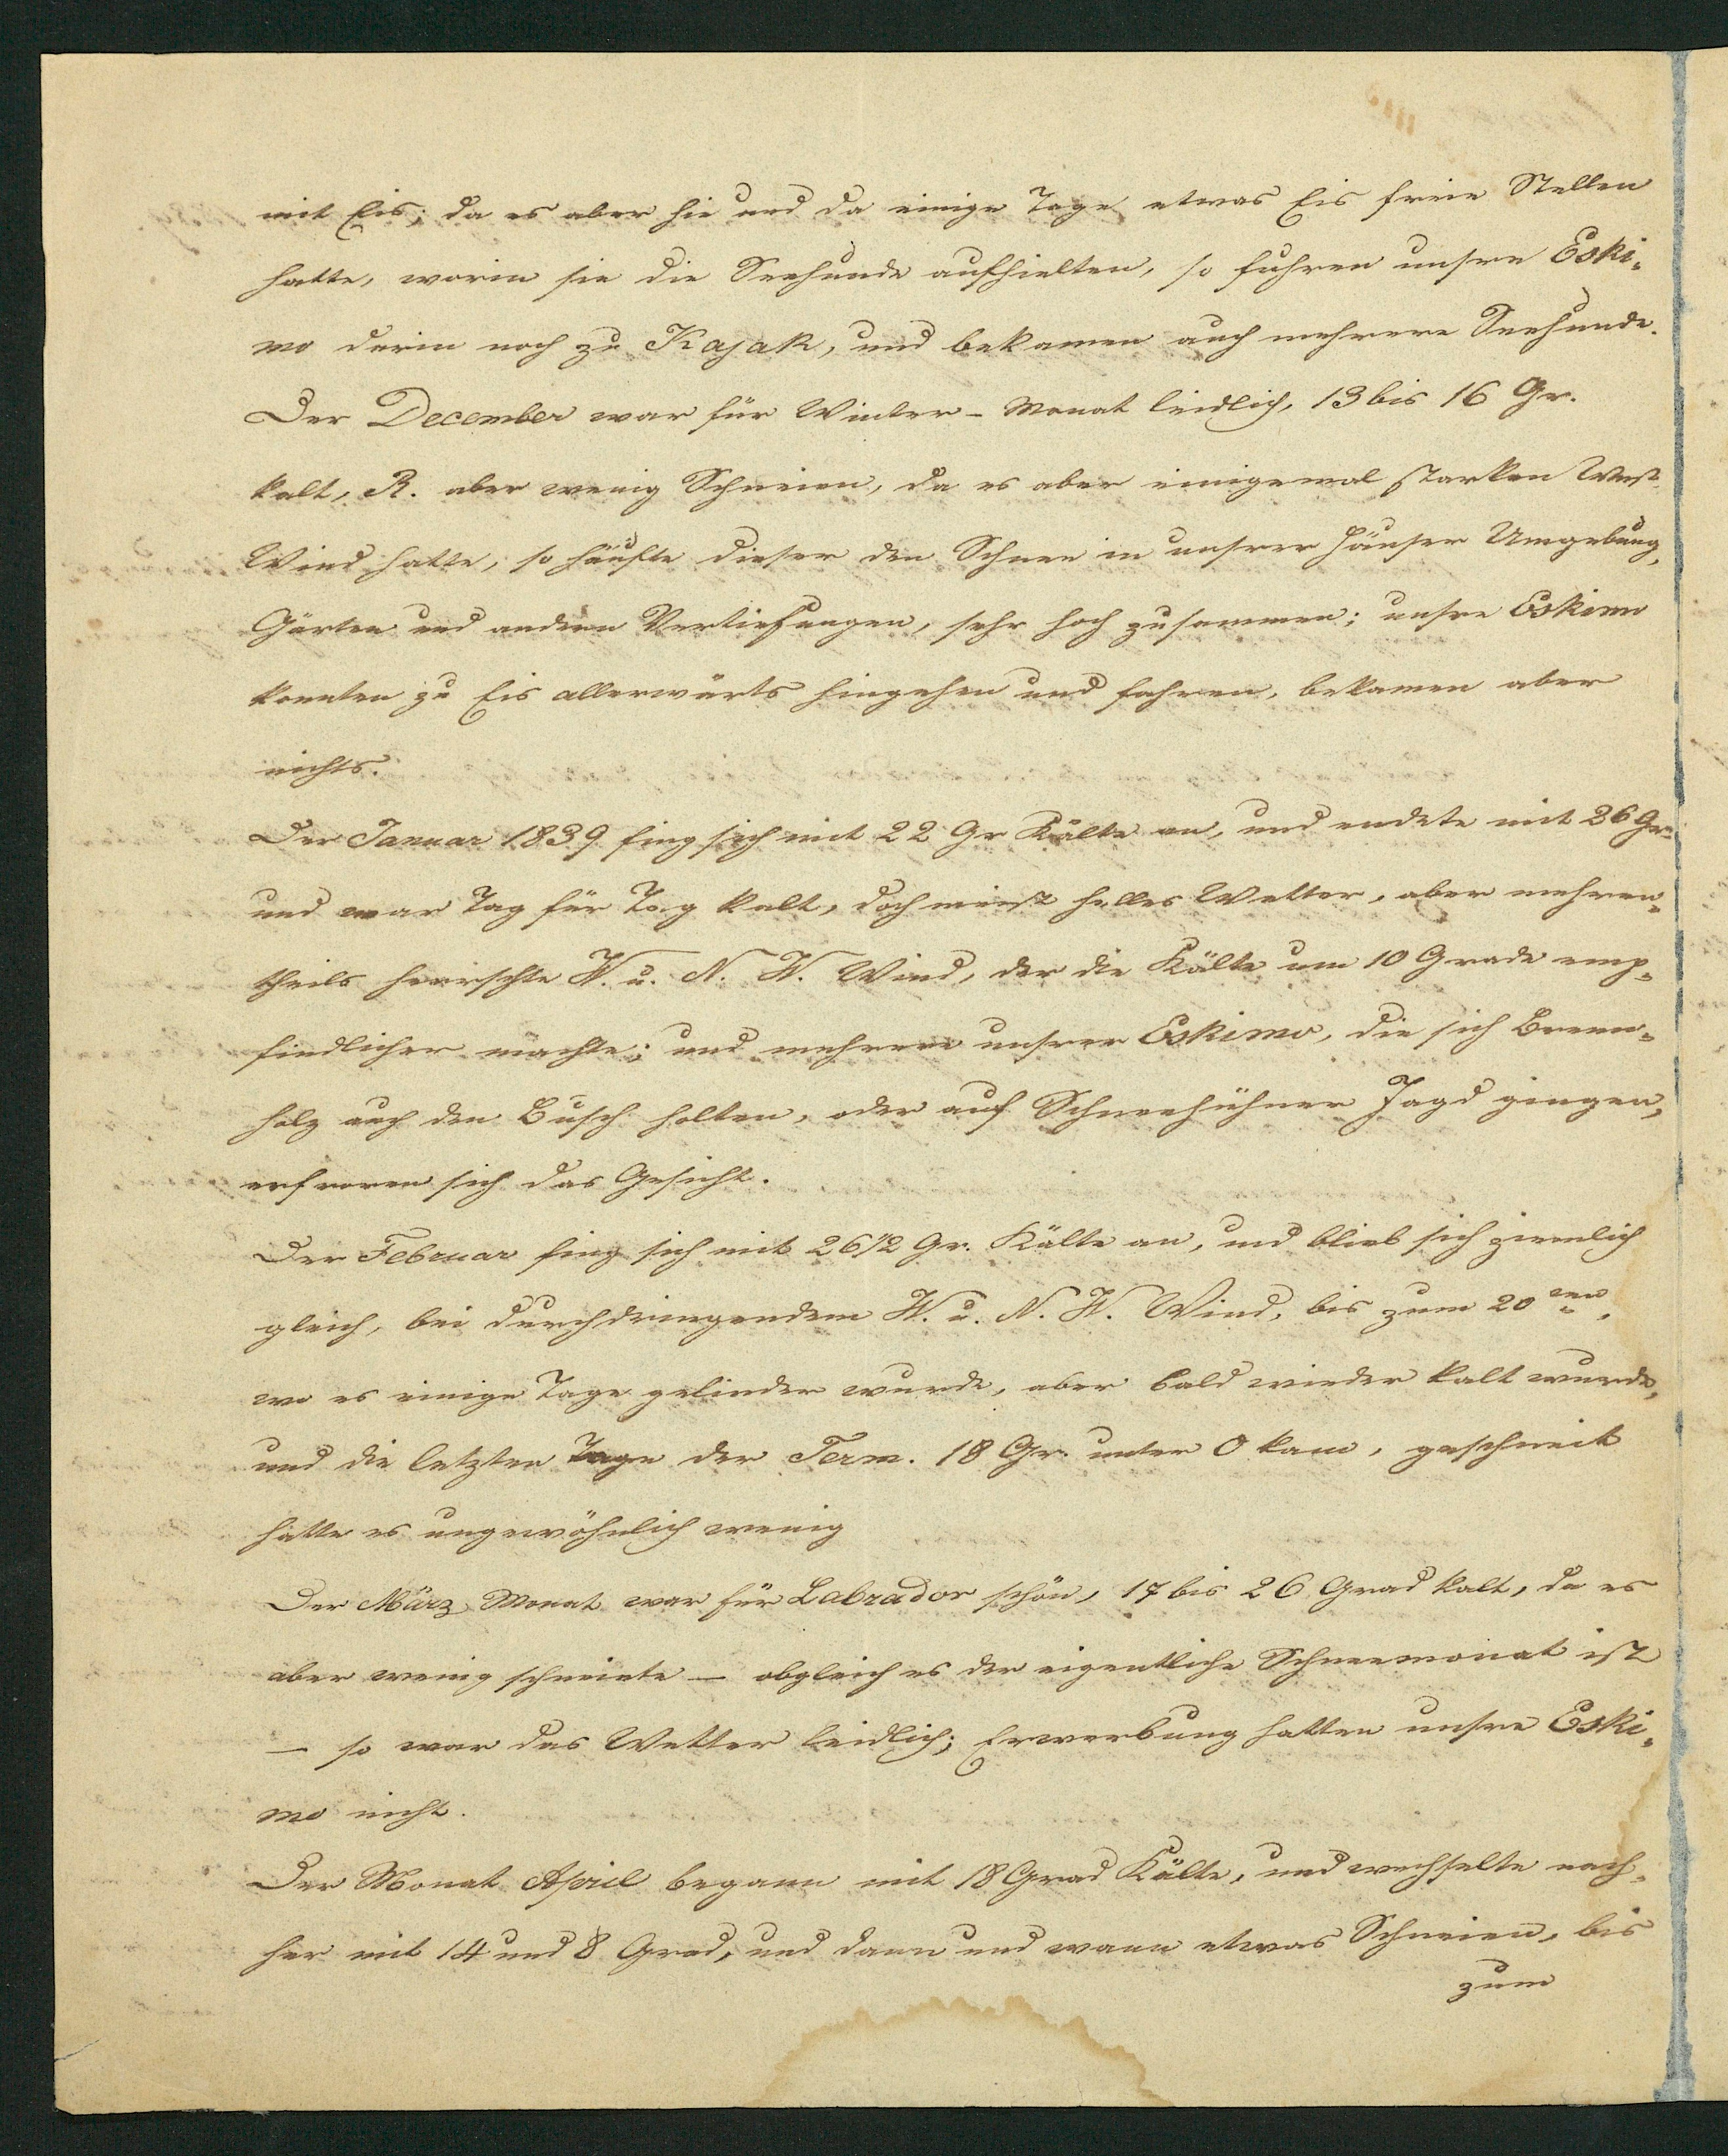 mit Eis; da es aber hie und da einige Tage etwas Eis freie Stellen
hatte, worin sie die Seehunde aufhielten, so fuhren unsre Eski-
mo darin noch zu Kajak, und bekamen auch mehrere Seehunde.
Der December war für Winter-Monat leidlich, 13 bis 16 Gr.
kalt, R. aber wenig Schneien, da es aber einigemal starken West-
Wind hatte, so häufte dieser den Schnee in unsrer Häuser Umgebung,
Gärten und andern Vertiefungen, sehr hoch zusammen; unsre Eskimo
konnten zu Eis allerwärts hingehen und fahren, bekamen aber
nichts.
Der Januar 1839 fing sich mit 22 Gr Kälte an, und endete mit 26 Gr.
und war Tag für Tag kalt, doch meist helles Wetter, aber mehren-
theils herrschte W. u. N. W. Wind, der die Kälte um 10 Grade emp-
findlicher machte; und mehrere unsrer Eskimo, die sich Brenn-
holz auch den Busch holten, oder auf Schneehühner Jagd gingen,
erfroren sich das Gesicht.
Der Februar fing sich mit 26 1/2 Gr. Kälte an, und blieb sich ziemlich
gleich, bei durchdringendem W. u. N. W. Wind, bis zum 20ten,
wo es einige Tage gelinder wurde, aber bald wieder kalt wurde,
und die letzten Tage der Term. 18 Gr. unter 0 kam, geschneit
hatte es ungewöhnlich wenig
Der März Monat war für Labrador schön, 17 bis 26 Grad kalt, da es
aber wenig schneiete — obgleich es der eigentliche Schneemonat ist
— so war das Wetter leidlich; Erwerbung hatten unsre Eski-
mo nicht.
Der Monat April begann mit 18 Grad Kälte, und wechselte nach-
her mit 14 und 8 Grad, und dann und wann etwas Schneien, bis
zum